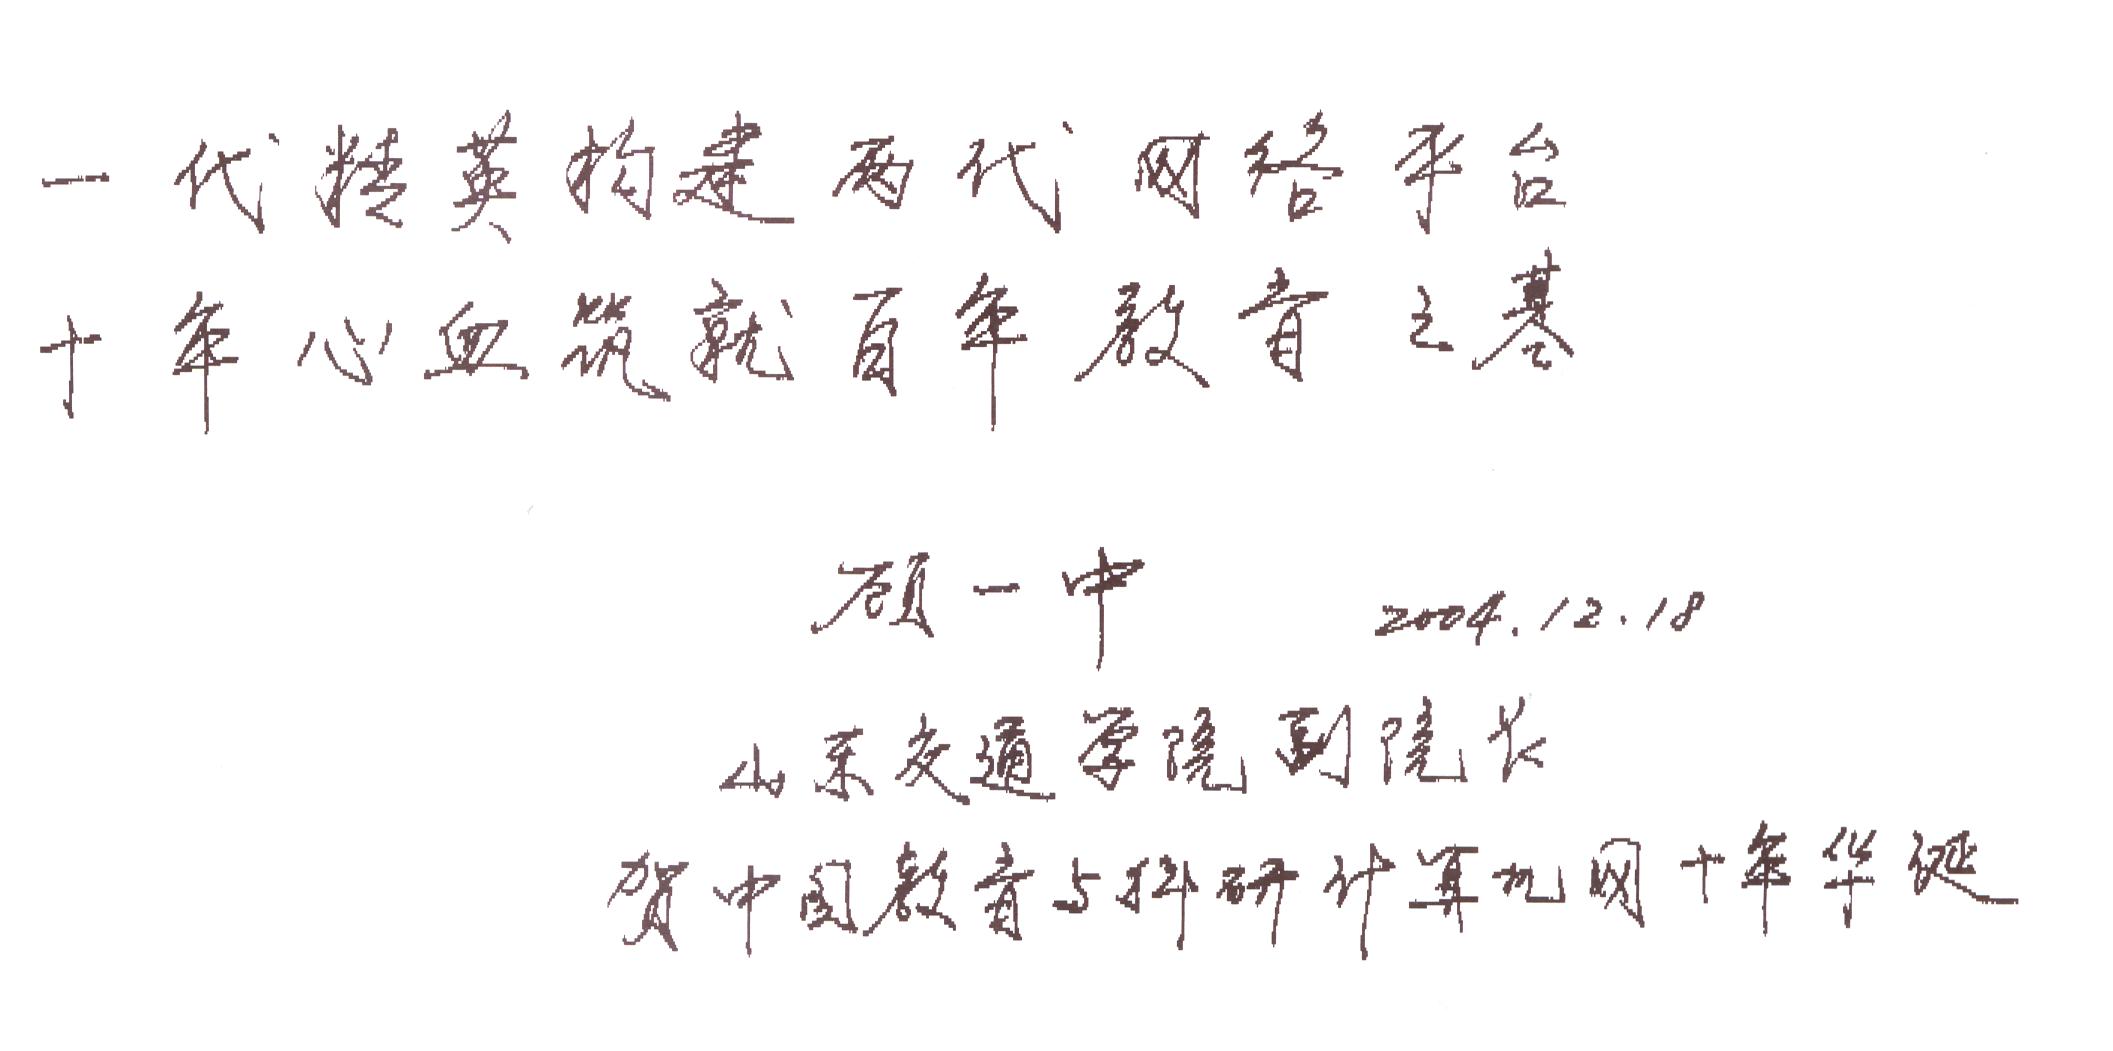 一代精英构建两代网络平台
十年心血筑就百年教育之基
顾一中 2004.12.18
山东交通学院副院长
贺中国教育与科研计算机网十年华诞